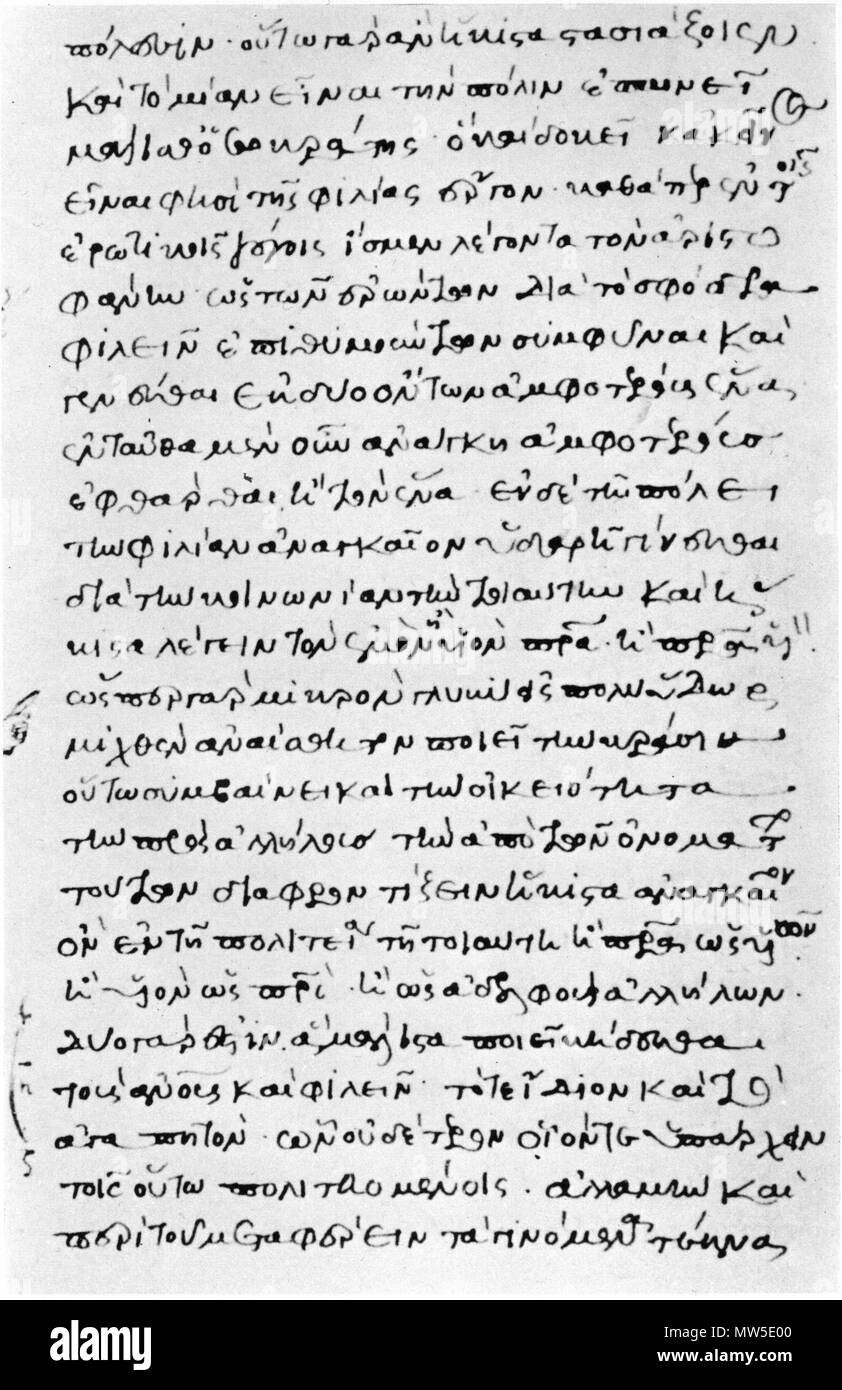 πόλεσιν· οὕτω γὰρ ἂν ἥκιστα στασιάζοιεν
καὶ τὸ μίαν εἶναι τὴν πόλιν ἐπαινεῖ
μάλισθ' ὁ σωκράτης· ὃ καὶ δοκεῖ κἀκεῖνο
εἶναι φησὶ τῆς φιλίας ἔργον· καθάπερ ἐν τοῖς
ἐρωτικοῖς λόγοις ἴσμεν λέγοντα τὸν ἀριστο
φάνην ὡς τῶν ἐρώντων διὰ τὸ σφόδρα
φιλεῖν ἐπιθυμούντων συμφῦναι καὶ
γενέσθαι ἐκ δύο ὄντων ἀμφοτέρους ἕνα·
ἐνταῦθα μὲν οὖν ἀνάγκη ἀμφοτέρους
ἐφθάρθαι ἢ τὸν ἕνα· ἐν δὲ τῇ πόλει
τὴν φιλίαν ἀναγκαῖον ὑδαρῆ γίνεσθαι
διὰ τὴν κοινωνίαν τὴν τοιαύτην καὶ ἥ
κιστα λέγειν τὸν ἐμὸν ἢ υἱὸν πρα· ἢ πρα υἱ
ὥσπερ γὰρ μικρὸν γλυκὺ εἰς πολὺ ὕδωρ
μιχθὲν ἀναίσθητον ποιεῖ τὴν κρᾶσιν
οὕτω συμβαίνει καὶ τὴν οἰκειότητα
τὴν πρὸς ἀλλήλους τὴν ἀπὸ τῶν ὀνομάτων
τούτων διαφροντίζειν ἥκιστα ἀναγκαῖον
ὂν ἐν τῇ πολιτείᾳ τῇ τοιαύτῃ ἢ πρα ὡς υἱῶν
ἢ υἱὸν ὡς πρς· ἢ ὡς ἀδελφοὺς ἀλλήλων·
δύο γάρ ἐστιν ἃ μάλιστα ποιεῖ κήδεσθαι
τοὺς ἀνους καὶ φιλεῖν· τό τε ἴδιον καὶ τὸ
ἀγαπητόν· ὧν οὐδέτερον οἷόν τε ὑπάρχειν
τοῖς οὕτω πολιτευομένοις· ἀλλὰ μὴν καὶ
περὶ τοῦ μεταφέρειν τὰ γινόμενα τέκνα
alamy
Image ID: MW5E00
www.alamy.com